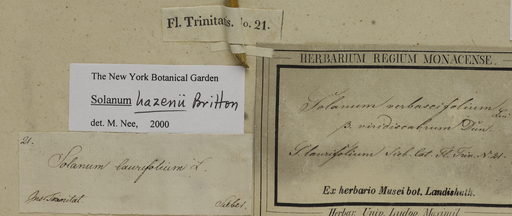 Fl. Trinitats. No. 21.
HERBARIUM REGIUM MONACENSE.
The New York Botanical Garden
Solanum hazenii Britton
det. M. Nee, 2000
Solanum verbascifolium
β. viridiscabrum Dun.
S. laurifolium Sieb. Fl. Trin. N. 21
21.
Solanum laurifolium L.
Ins. Trinitat
Sieber.
Ex herbario Musei bot. Landishuth.
Herbar. Univ. Ludov. Maximil.